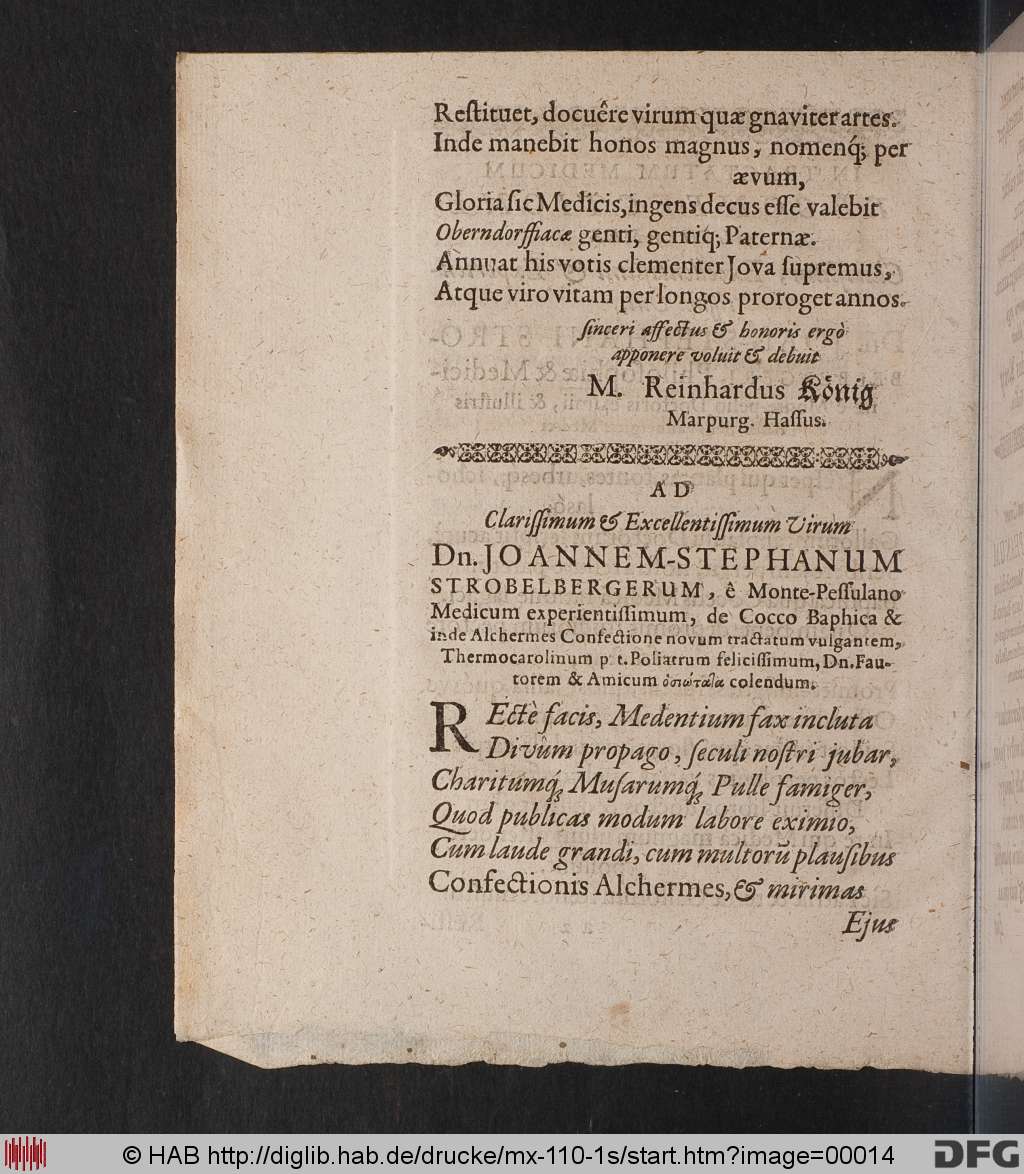 Reſtituet, docuêre virum quæ gnaviter artes.
Inde manebit honos magnus, nomenq́; per
ævum,
Gloria ſic Medicis, ingens decus eſſe valebit
Oberndorffiacæ genti, gentiq́; Paternæ.
Annuat his votis clementer Jova ſupremus,
Atque viro vitam per longos proroget annos.
ſinceri affectus & honoris ergò
apponere voluit & debuit
M. Reinhardus König
Marpurg. Haſſus.
AD
Clariſſimum & Excellentiſſimum Virum
Dn. JOANNEM-STEPHANUM
STROBELBERGERUM, ê Monte-Peſſulano
Medicum experientiſſimum, de Cocco Baphica &
inde Alchermes Confectione novum tractatum vulgantem,
Thermocarolinum p. t. Poliatrum feliciſſimum, Dn. Fau-
torem & Amicum colendum.
REctè facis, Medentium fax incluta
Divûm propago, ſeculi noſtri jubar,
Charitumq́; Muſarumq́; Pulle famiger,
Quod publicas modum labore eximio,
Cum laude grandi, cum multorū plauſibus
Confectionis Alchermes, & mirimas
Ejus
© HAB http://diglib.hab.de/drucke/mx-110-1s/start.htm?image=00014
DFG